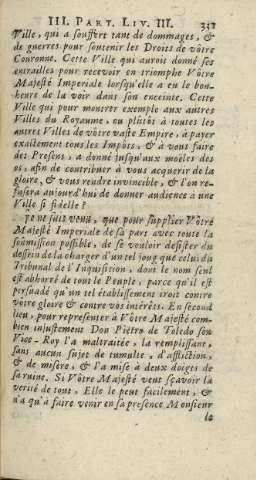 III. PART. LIV. III. 313
Ville, qui a souffert tant de dommages, &
de guerres pour soutenir les Droits de vôtre
Couronne. Cette Ville qui auroit donné ses
entrailles pour recevoir en triomphe Vôtre
Majesté Imperiale lorsqu'elle a eu le bon-
heure de la voir dans son enceinte. Cette
Ville qui pour montrer exemple aux autres
Villes du Royaume, ou plûtôt à toutes les
autres Villes de vôtre vaste Empire, à payer
exactement tous les Impôts, & à vous faire
des Presens, a donné jusqu'aux moëles des
os, afin de contribuer à vous acquerir de la
gloire, & vous rendre invincible, & l'on re-
fusera aujourd'hui de donner audience à une
Ville si fidelle?
Je ne suis venu, que pour supplier Vôtre
Majesté Imperiale de sa part avec toute la
soûmission possible, de se vouloir desister du
dessein de la charger d'un tel joug que celui du
Tribunal de l'Inquisition, dont le nom seul
est abhorré de tout le Peuple, parce qu'il est
persuadé qu'un tel établissement iroit contre
vôtre gloire & contre vos intérêts. En second
lieu, pour representer à Vôtre Majesté com-
bien injustement Don Piètre de Toledo son
Vice-Roy l'a maltraitée, la remplissant,
sans aucun sujet de tumulte, d'affliction,
& de misère, & l'a mise à deux doigts de
sa ruine. Si Vôtre Majesté veut sçavoir la
verité de tout, Elle le peut facilement, &
n'a qu'à faire venir en sa presence Monsieur
le